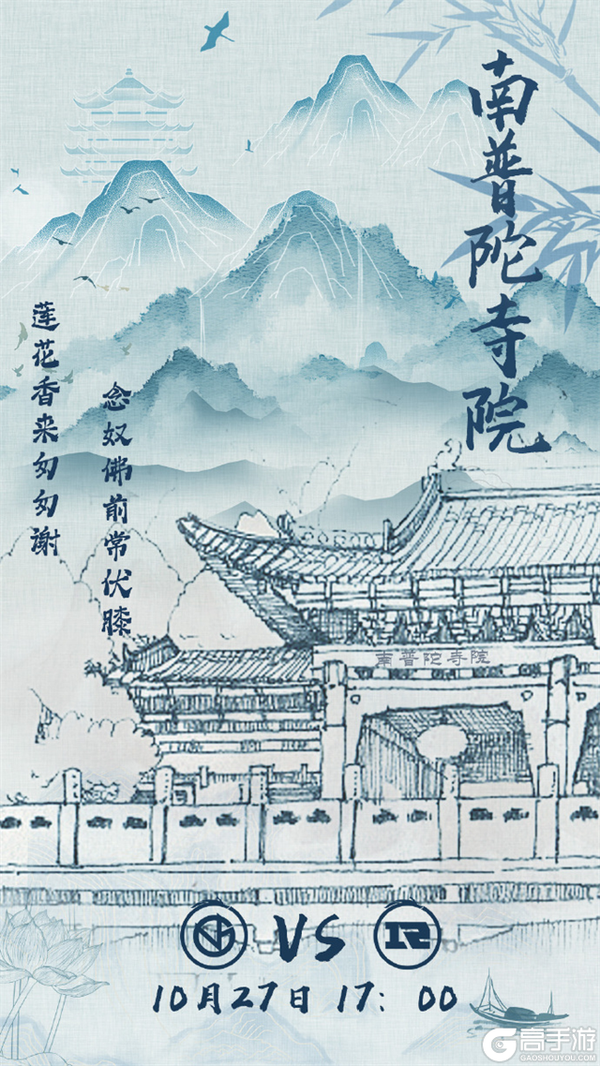 南普陀寺院
念奴佛前常伏膝
莲花香来匆匆谢
南普陀寺院
VS
R
10月27日 17：00
高手游
GAOSHOUYOU.COM